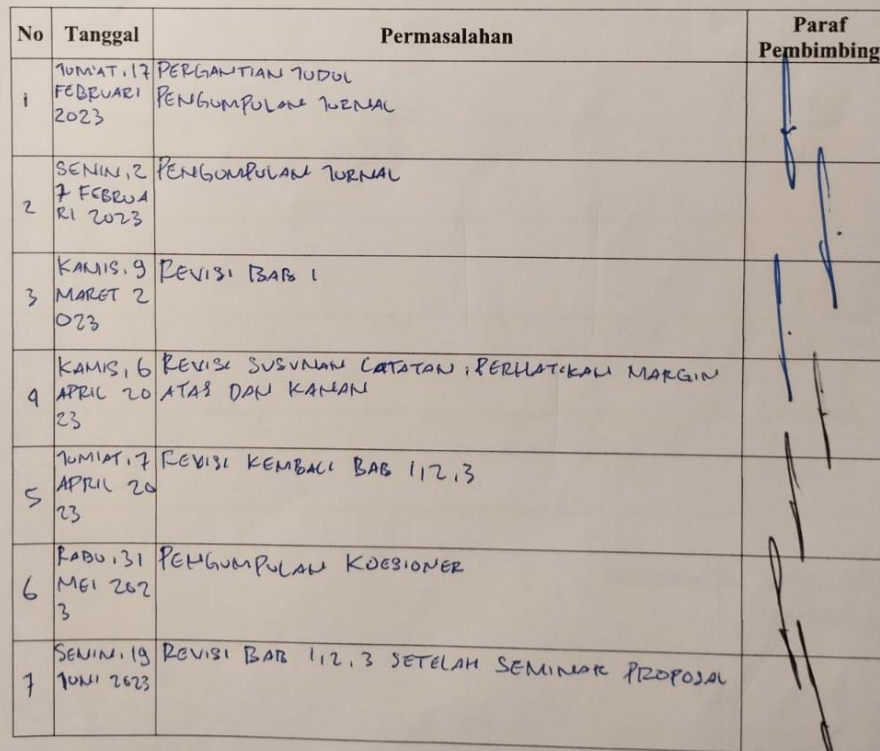 No Tanggal Permasalahan Paraf Pembimbing
1 JUM'AT, 17 FEBRUARI 2023 PERGANTIAN JUDUL
PENGUMPULAN JURNAL
2 SENIN, 27 FEBRUARI 2023 PENGUMPULAN JURNAL
3 KAMIS, 9 MARET 2023 REVISI BAB 1
4 KAMIS, 6 APRIL 2023 REVISI SUSUNAN CATATAN, PERHATIKAN MARGIN
ATAS DAN KANAN
5 JUMIAT, 7 APRIL 2023 REVISI KEMBALI BAB 1,2,3
6 RABU, 31 MEI 2023 PENGUMPULAN KUESIONER
7 SENIN, 19 JUNI 2023 REVISI BAB 1,2,3 SETELAH SEMINAR PROPOSAL